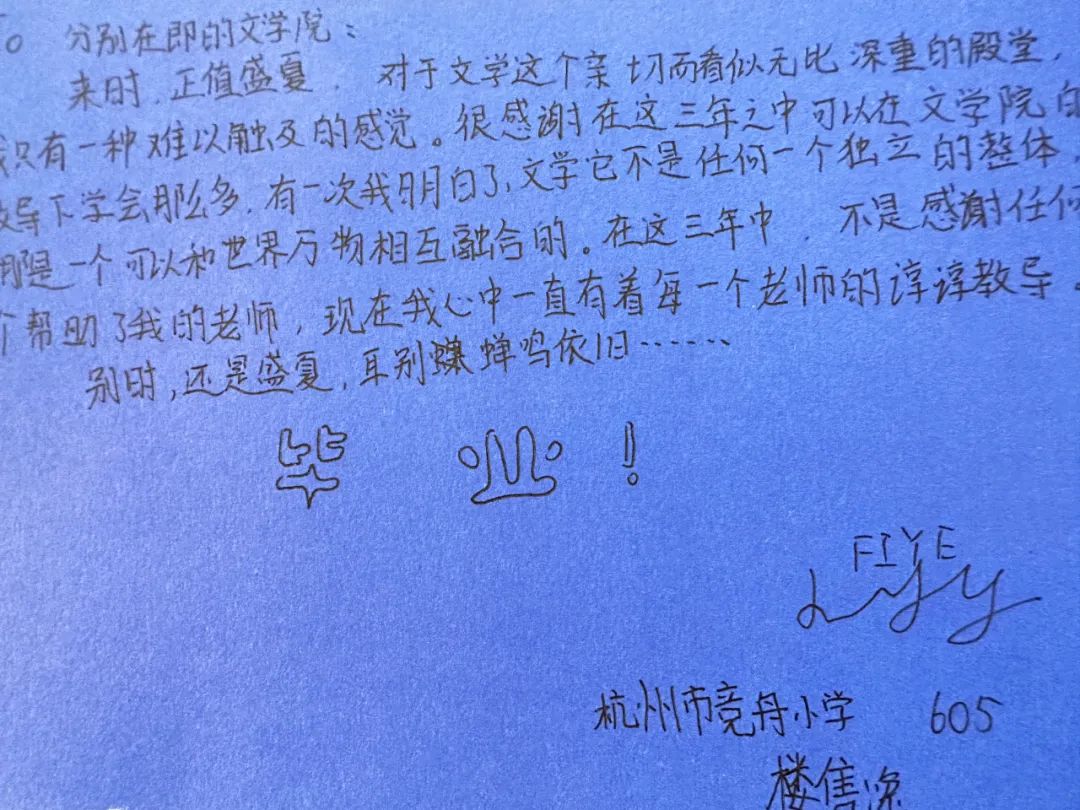 To 分别在即的文学院：
来时，正值盛夏，对于文学这个亲切而看似无比深重的殿堂，
我只有一种难以触及的感觉。很感谢在这三年之中可以在文学院的
教导下学会那么多，有一次我明白了，文学它不是任何一个独立的整体，
那是一个可以和世界万物相互融合的。在这三年中，不是感谢任何
个帮助了我的老师，现在我心中一直有着每一个老师的谆谆教导。
别时，还是盛夏，耳别蝉鸣依旧……
毕业！
FIYE
杭州市竞舟小学 605
楼隽